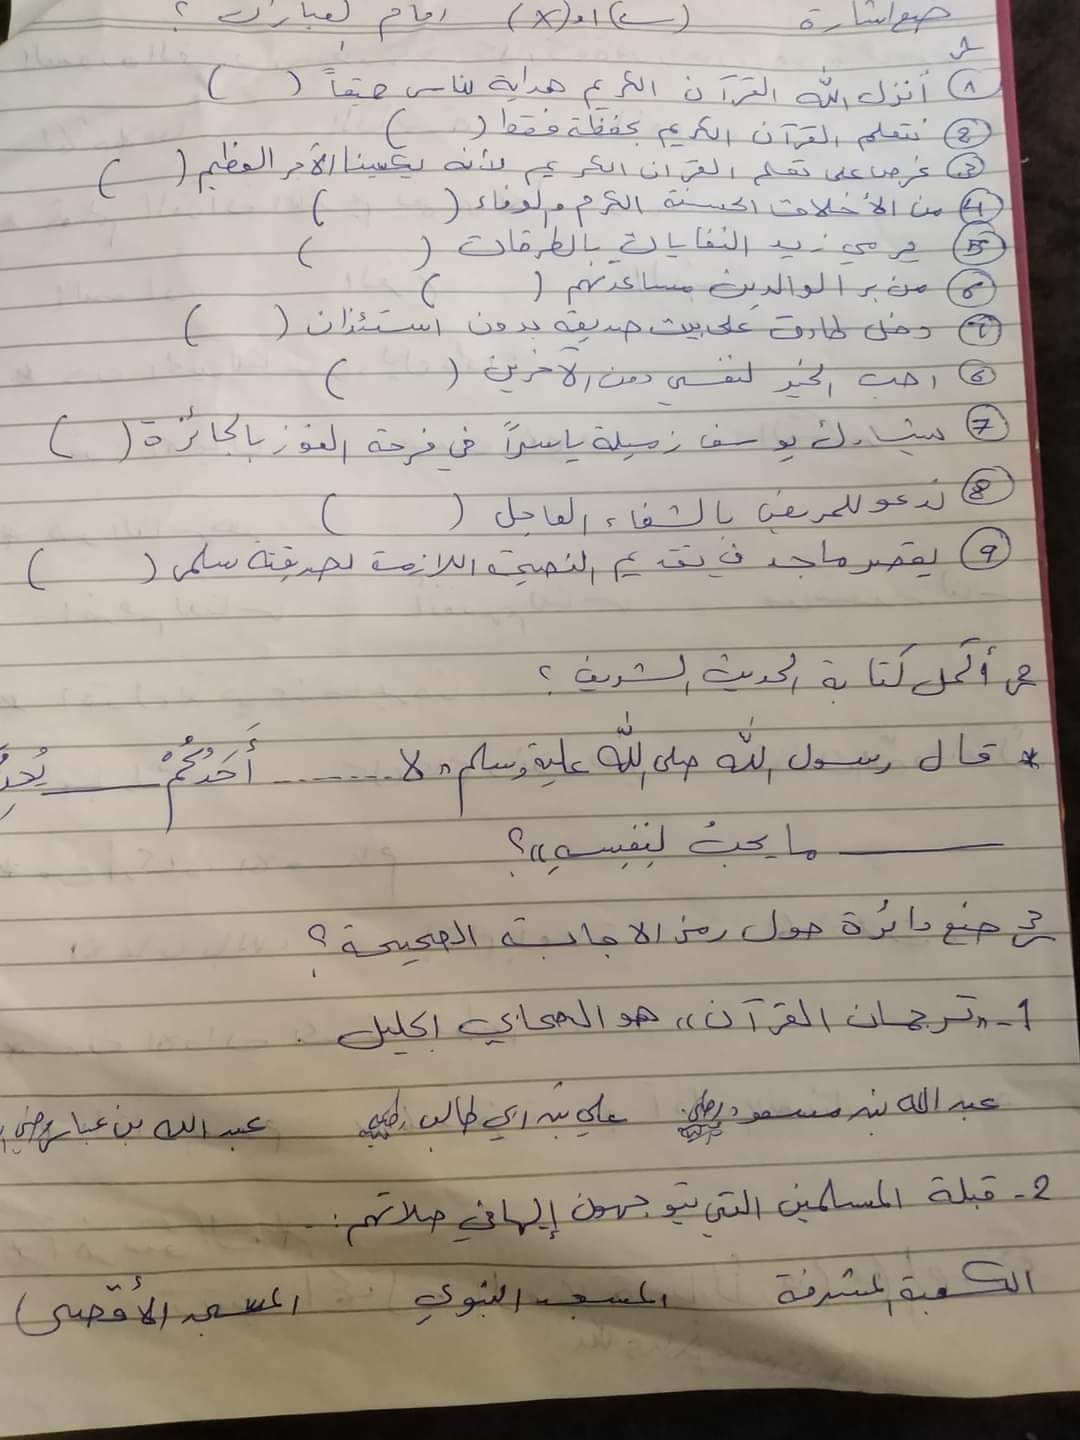 ضع اشارة (✓) او (x) امام العبارات ؟
س1
① أنزل الله القرآن الكريم هداية للناس جميعاً ( )
② نتعلم القرآن الكريم بحفظة فقط ( )
③ نحرص على تعلم القران الكريم لأنه يكسبنا الأجر العظيم ( )
④ من الأخلاق الحسنة الكرم والوفاء ( )
⑤ يرمي زيد النفايات بالطرقات ( )
⑥ من بر الوالدين مساعدتهم ( )
دخل طارق على بيت صديقه بدون استئذان ( )
⑥ احب الخير لنفسي دون الآخرين ( )
⑦ يشارك يوسف زميلة ياسراً في فرحة الفوز بالجائزة ( )
⑧ ندعو للمريض بالشفاء العاجل ( )
⑨ يقصر ماجد في تقديم النصيحة اللازمة لصديقة سلمى ( )
س2 أكمل كتابة الحديث الشريف ؟
* قال رسول الله صلى الله علية وسلم « لا ........ أَحَدُكُمْ ____
____ ما يحبُ لِنفِسهِ » ؟
س3 ضع دائرة حول رمز الاجابة الصحيحة ؟
1- «ترجمان القرآن» هو الصحابي الجليل .
عبد الله بن مسعود رضي علي بن ابي طالب عبد الله بن عباس رضي
2- قبلة المسلمين التي يتوجهون إليها في صلاتهم :.
الكعبة المشرفة المسجد النبوي المسجد الأقصى